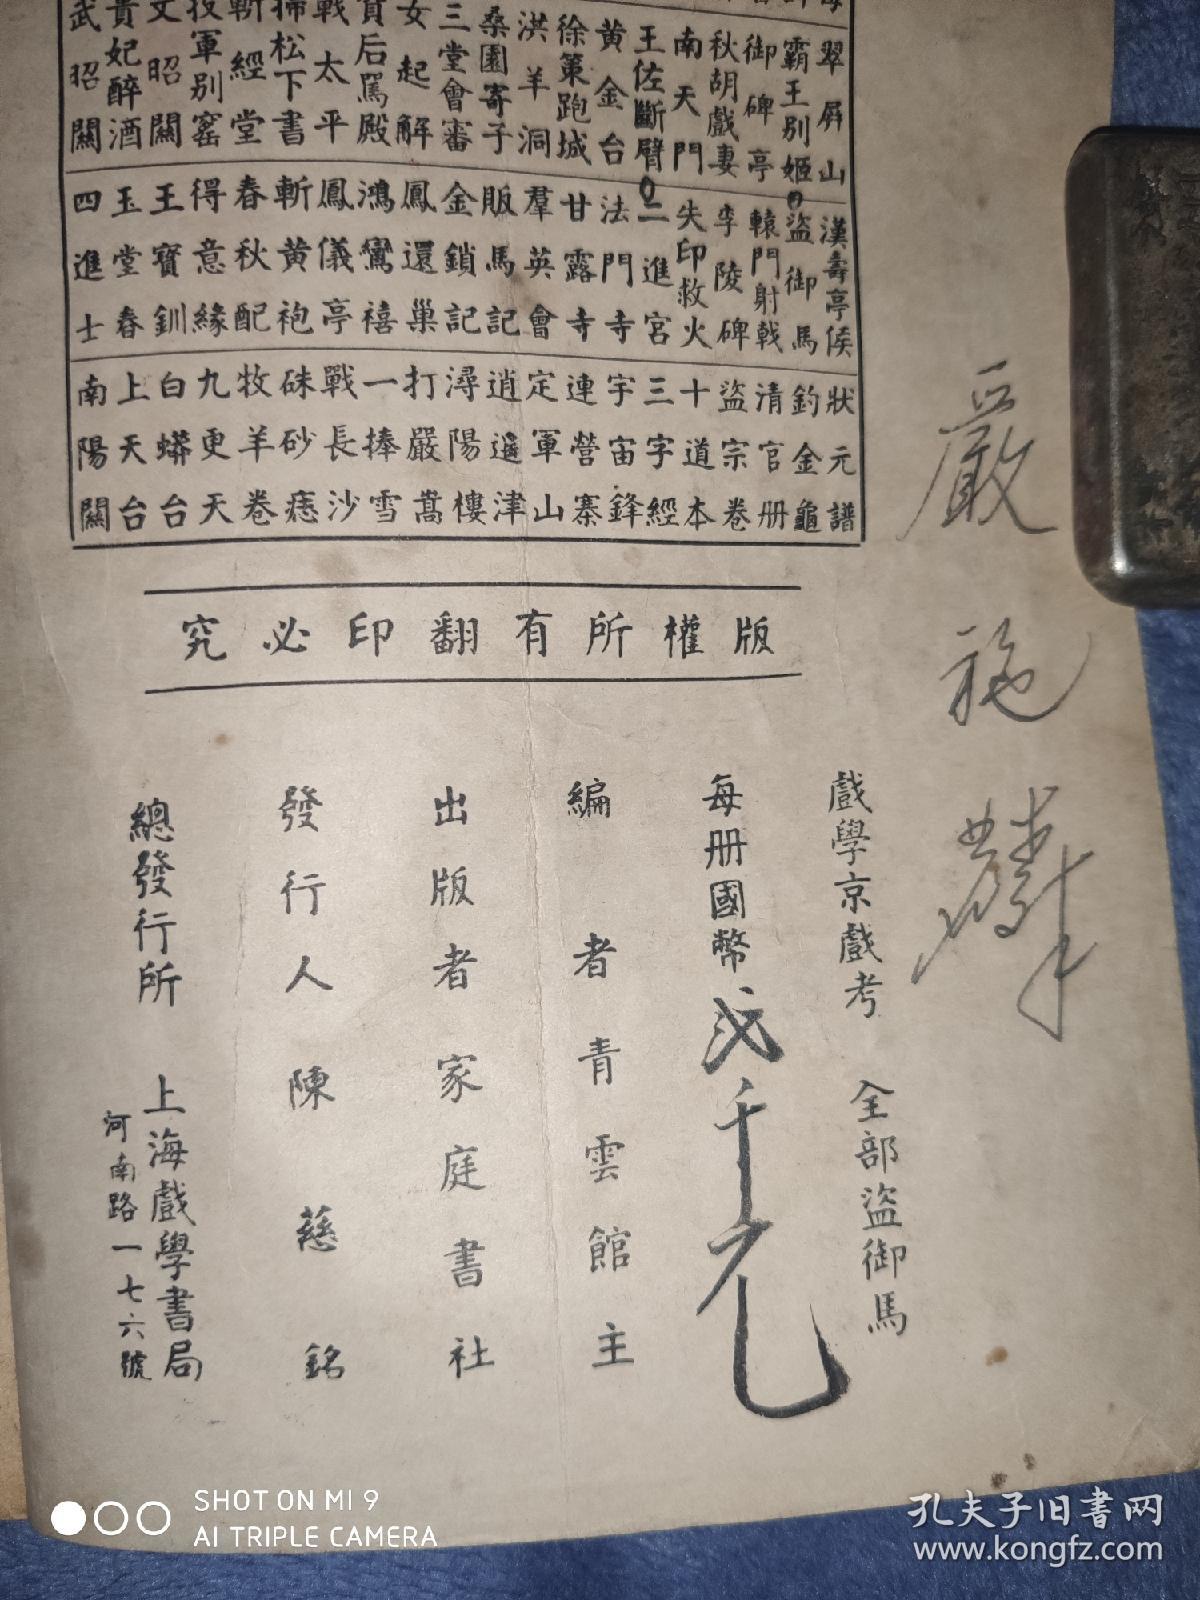 翠屏山 漢壽亭侯 狀元譜
霸王别姬 盜御馬 釣金龜
御碑亭 轅門射戟 清官册
秋胡戲妻 李陵碑 盜宗卷
南天門 失印救火 十道本
王佐斷臂 二進宮 三字經
黄金台 法門寺 宇宙鋒
徐策跑城 甘露寺 連營寨
洪羊洞 羣英會 定軍山
桑園寄子 販馬記 逍遥津
三堂會審 金鎖記 潯陽樓
女起解 鳳還巢 打嚴嵩
賀后罵殿 鴻鸞禧 一捧雪
戰太平 鳳儀亭 戰長沙
掃松下書 斬黄袍 硃砂痣
斬經堂 春秋配 牧羊卷
投軍别窰 得意緣 九更天
文昭關 王寶釧 白蟒台
貴妃醉酒 玉堂春 上天台
武昭關 四進士 南陽關
版權所有翻印必究
戲學京戲考 全部盜御馬
每册國幣貳千元
編者青雲館主
出版者家庭書社
發行人陳慈銘
總發行所 上海戲學書局
河南路一七六號
嚴
SHOT ON MI 9
AI TRIPLE CAMERA
孔夫子旧书网
www.kongfz.com